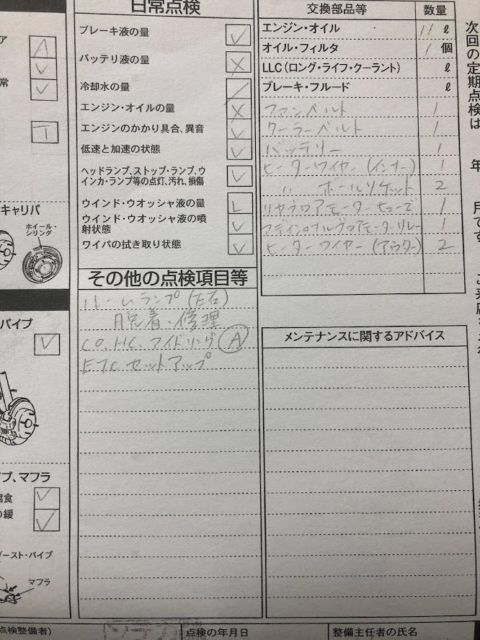 日常点検
ブレーキ液の量
バッテリ液の量
冷却水の量
エンジン・オイルの量
エンジンのかかり具合、異音
低速と加速の状態
ヘッドランプ、ストップ・ランプ、ウ
インカ・ランプ等の点灯、汚れ、損傷
ウインド・ウオッシャ液の量
ウインド・ウオッシャ液の噴
射状態
ワイパの拭き取り状態
その他の点検項目等
ルームランプ(左右)
脱着・修理
CO.HC.アイドリング A
ETC セットアップ
交換部品等 数量
エンジン・オイル 11 ℓ
オイル・フィルタ 1 個
LLC(ロング・ライフ・クーラント) ℓ
ブレーキ・フルード ℓ
ファンベルト 1
クーラーベルト 1
バッテリー 1
ヒーターワイヤー(インナー) 1
〃 ホールソケット 2
リヤラ
ヒューズ 1
リレー 1
ヒーターワイヤー(アウター) 2
メンテナンスに関するアドバイス
次回の定期点検は 年 月です。
ア
常
キャリパ
ホイール・
シリンダ
パイプ
プ、マフラ
腐食
の緩
ースト・パイプ
マフラ
点検整備者)
点検の年月日
整備主任者の氏名